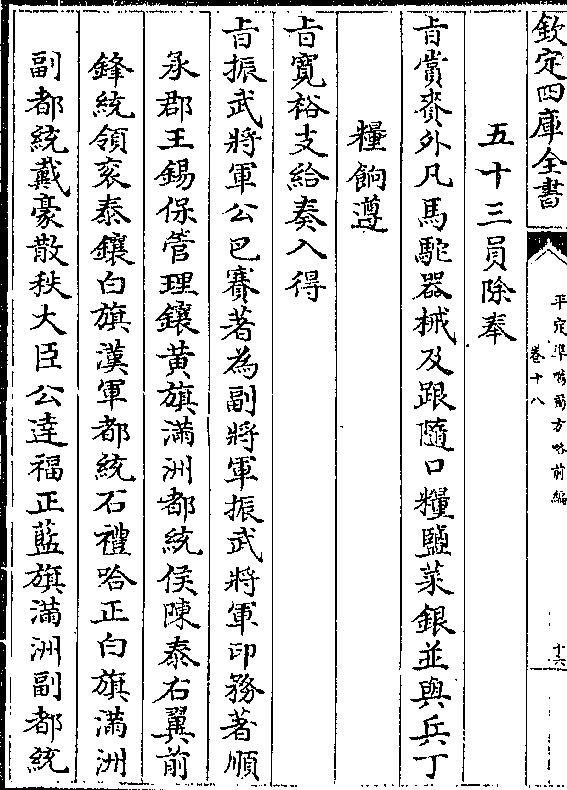 欽定四庫全書
平定準噶爾方略前編
卷十八
十六
五十三員除奉
旨賞賚外凡馬駝器械及跟隨口糧鹽菜銀並與兵丁
糧餉遵
旨寛裕支給奏入得
旨振武將軍公巴賽著為副將軍振武將軍印務著順
承郡王錫保管理鑲黄旗滿洲都統侯陳泰右翼前
鋒統領衮泰鑲白旗漢軍都統石禮哈正白旗滿洲
副都統戴豪散秩大臣公達福正藍旗滿洲副都統